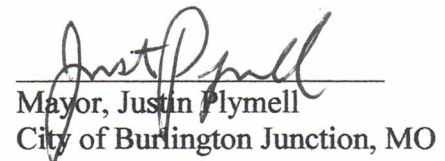 Just Plymell
Mayor, Justin Plymell
City of Burlington Junction, MO